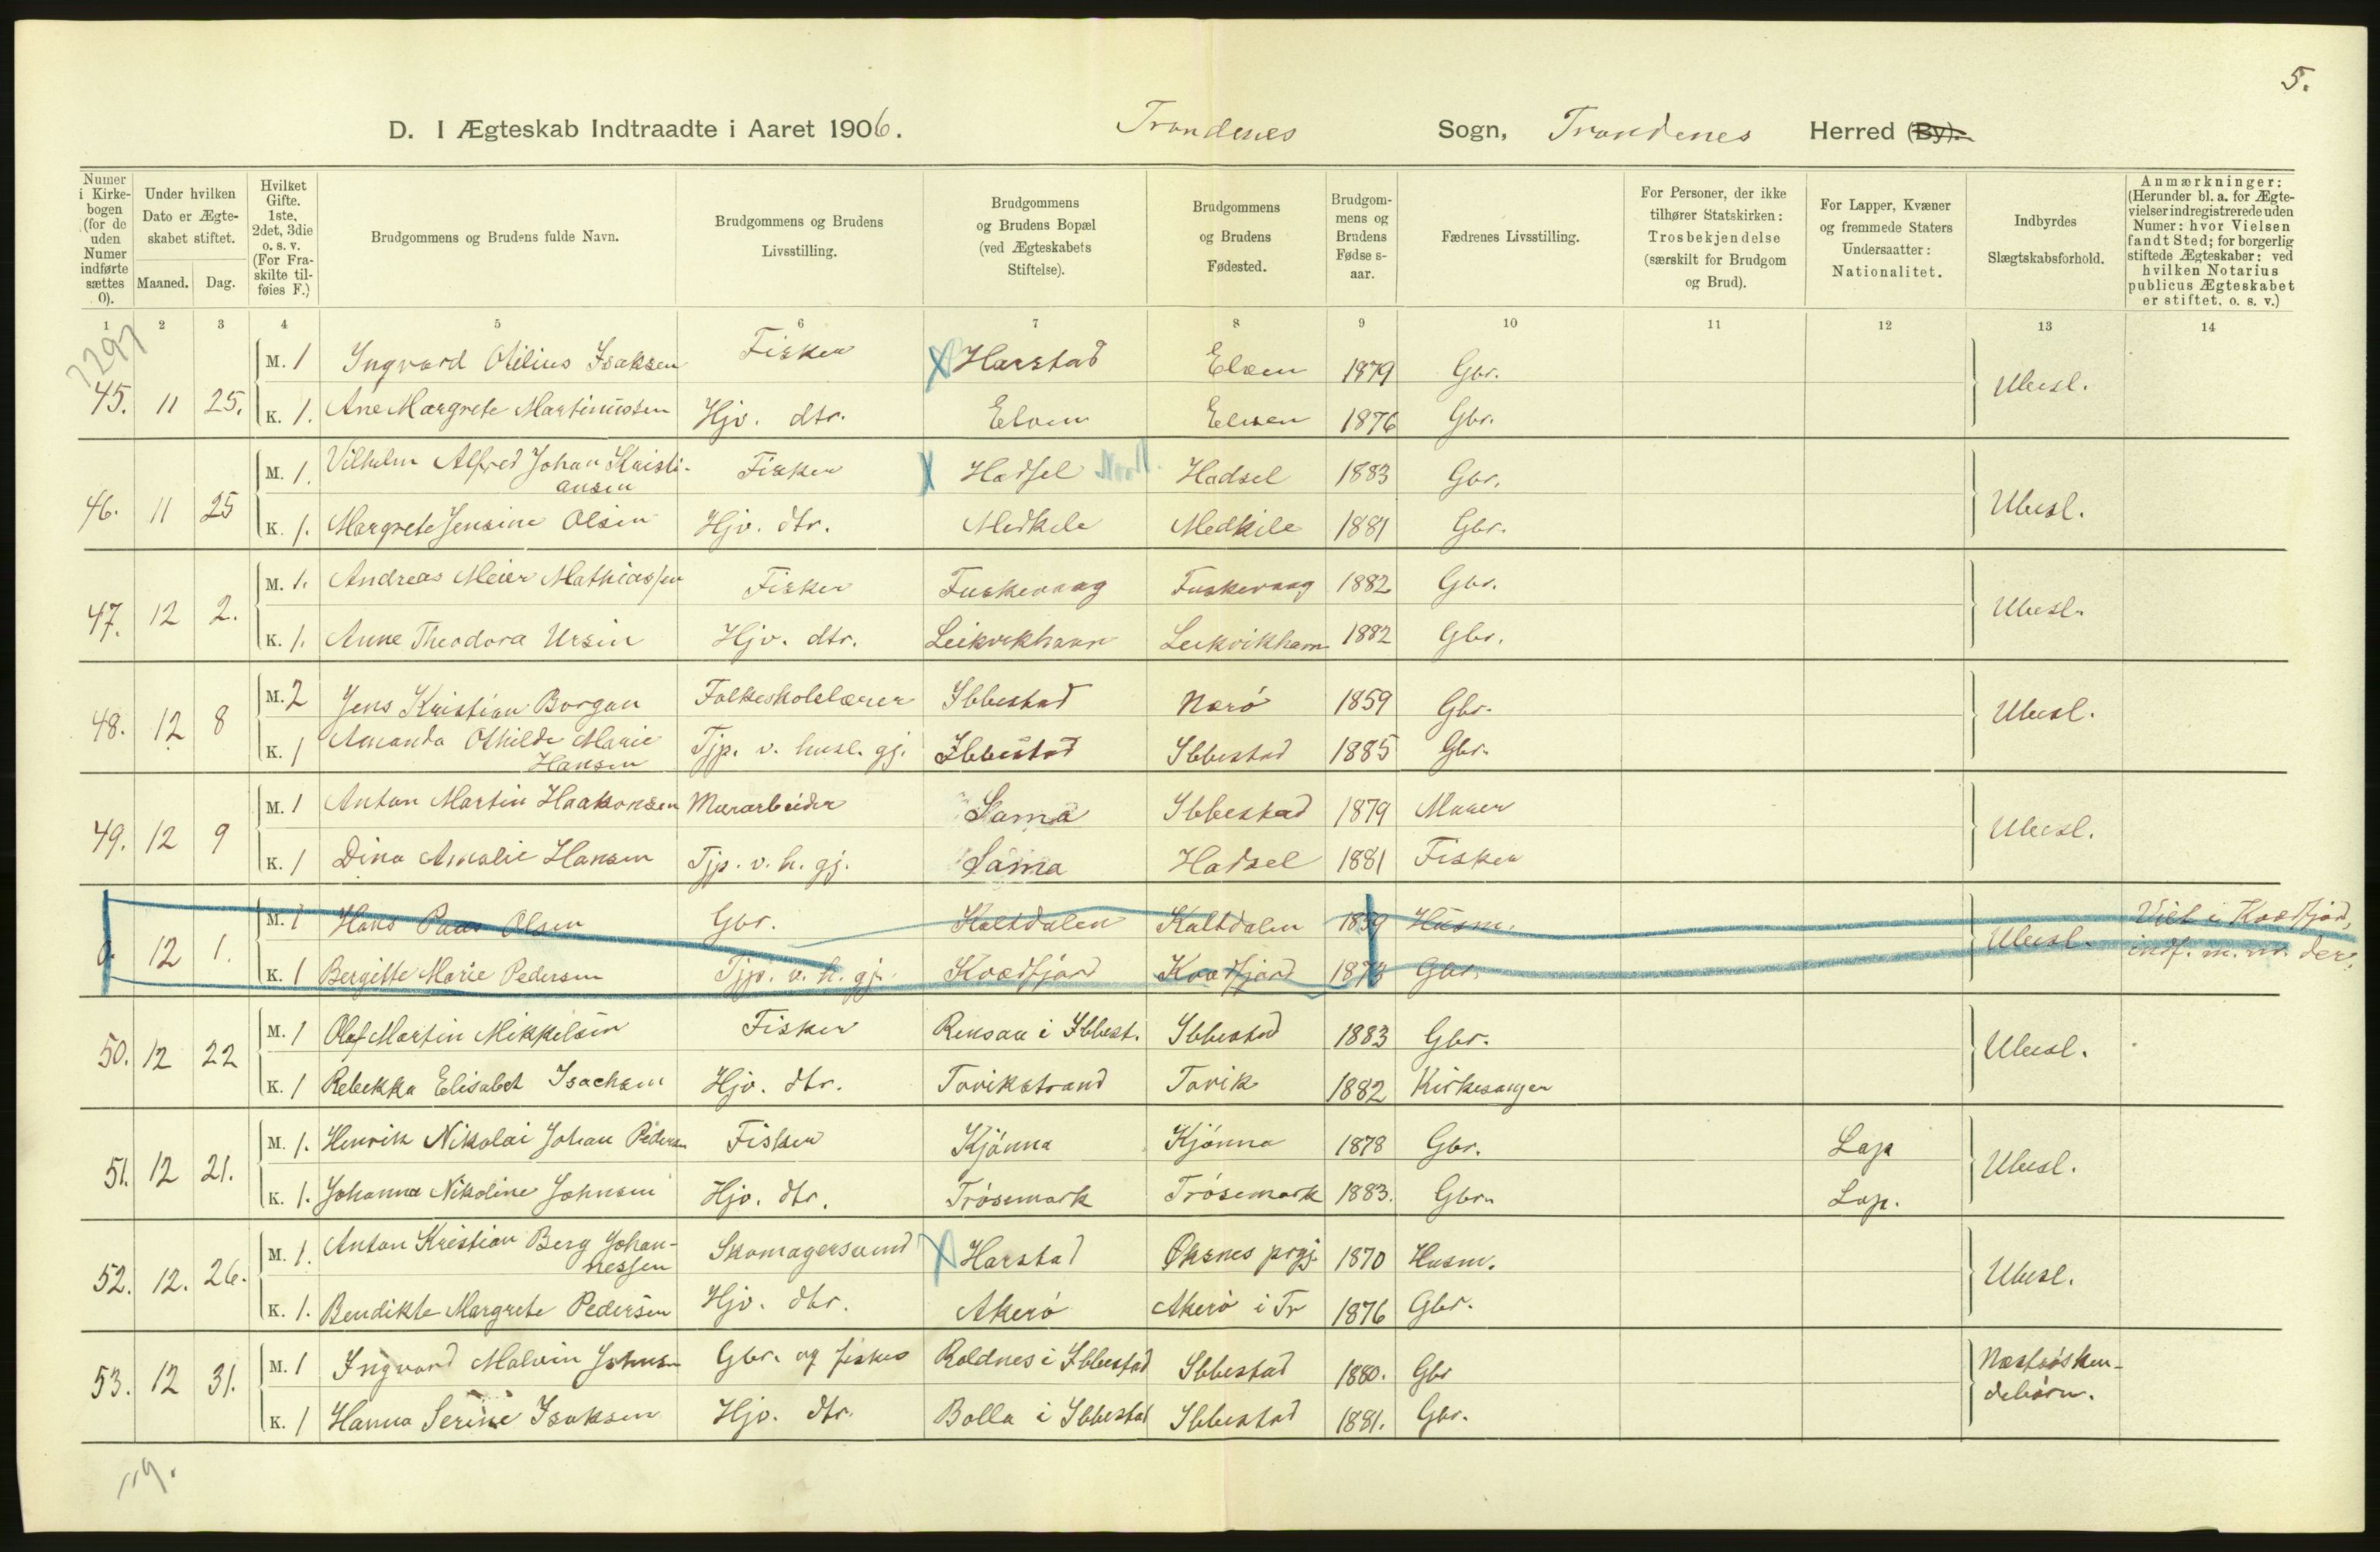 5.
D. I Ægteskab Indtraadte i Aaret 1906. Trondenes Sogn, Trondenes Herred (By).
Numer i Kirkebogen (for de uden Numer indførte sættes 0).
Under hvilken Dato er Ægteskabet stiftet.
Maaned. Dag.
Hvilket Gifte. 1ste, 2det, 3die o. s. v. (For Fraskilte tilføies F.)
Brudgommens og Brudens fulde Navn.
Brudgommens og Brudens Livsstilling.
Brudgommens og Brudens Bopæl (ved Ægteskabets Stiftelse).
Brudgommens og Brudens Fødested.
Brudgommens og Brudens Fødselsaar.
Fædrenes Livsstilling.
For Personer, der ikke tilhører Statskirken: Trosbekjendelse (særskilt for Brudgom og Brud).
For Lapper, Kvæner og fremmede Staters Undersaatter: Nationalitet.
Indbyrdes Slægtskabsforhold.
Anmærkninger: (Herunder bl. a. for Ægtevielser indregistrerede uden Numer: hvor Vielsen fandt Sted; for borgerlig stiftede Ægteskaber: ved hvilken Notarius publicus Ægteskabet er stiftet, o. s. v.)
1 2 3 4 5 6 7 8 9 10 11 12 13 14
M. 1 Ingvard Otilius Isaksen Fisker X Harstad Elven 1879 Gbr.
45. 11 25. Ubesl.
K. 1. Ane Margrete Martinussen Hjv. dtr. Elven Elven 1876 Gbr.
M. 1. Vilhelm Alfred Johan Kristiansen Fisker X Hadsel Hadsel 1883 Gbr.
46. 11 25 Ubesl.
K. 1. Margrete Jensine Olsen Hjv. dtr. Medkile Medkile 1881 Gbr.
M. 1. Andreas Meier Mathiassen Fisker Fuskevaag Fuskevaag 1882 Gbr.
47. 12 2. Ubesl.
K. 1. Anne Theodora Ursin Hjv. dtr. Leikvikhavn Leikvikhavn 1882 Gbr.
M. 2 Jens Kristian Borgan Folkeskolelærer Ibbestad Nærö 1859 Gbr.
48. 12 8 Ubesl.
K. 1 Amanda Othilde Marie Hansen Tjp. v. husl. gj. Ibbestad Ibbestad 1885 Gbr.
M. 1 Anton Martin Haakonsen Murarbeider Sama Ibbestad 1879 Murer
49. 12 9 Ubesl.
K. 1 Dina Amalie Hansen Tjp. v. h. gj. Sama Hadsel 1881 Fisker
M. 1 Hans Olsen Gbr. Kaltdalen Kaltdalen 1859 Husm. Viet i Kvædfjord,
0. 12 1. Ubesl. indf. m. nr. der.
K. 1 Bergitte Marie Pedersen Tjp. v. h. gj. Kvædfjord Kvædfjord Gbr.
M. 1 Olaf Martin Mikkelsen Fisker Rensaa i Ibbest. Ibbestad 1883 Gbr.
50. 12 22 Ubesl.
K. 1 Rebekka Elisabet Isachsen Hjv. dtr. Tovikstrand Tovik 1882 Kirkesanger
M. 1. Henrik Nikolai Johan Pedersen Fisker Kjönna Kjönna 1878 Gbr. Lap
51. 12 21. Ubesl.
K. 1. Johanna Nikoline Johnsen Hjv. dtr. Trösemark Trösemark 1883. Gbr. Lap.
M. 1. Anton Kristian Berg Johannessen Skomagersvend X Harstad Øksnes prgj. 1870 Husm.
52. 12. 26. Ubesl.
K. 1. Bendikte Margrete Pedersen Hjv. dtr. Akerö Akerö i Tr 1876 Gbr.
M. 1 Ingvard Malvin Johnsen Gbr. og fisker Roldnes i Ibbestad Ibbestad 1880. Gbr
53. 12 31. Næstsöskendebörn.
K. 1 Hanna Serine Isaksen Hjv. dtr. Bolla i Ibbestad Ibbestad 1881. Gbr.
119.